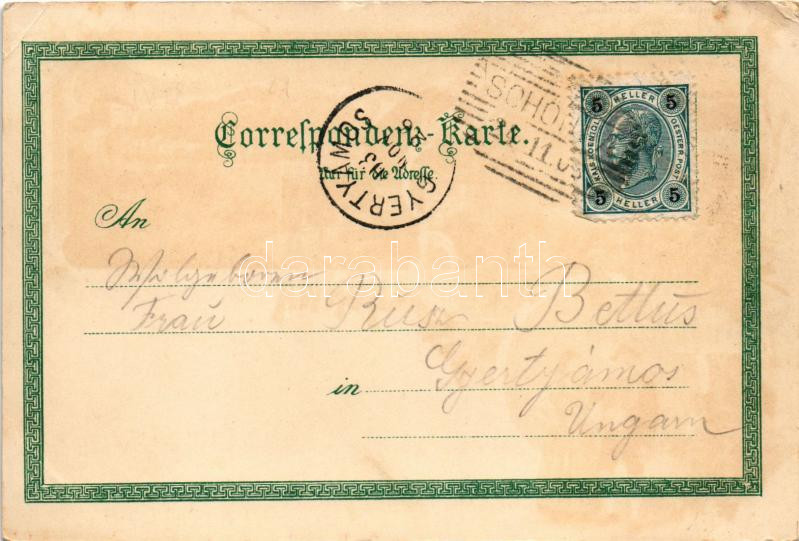 Correspondenz-Karte.
Nur für die Adresse.
GYERTYÁMOS
SCHÖN
5 HELLER 5
KAIS. KOENIGL. OESTERR. POST
5 HELLER 5
An
Wolgeborene
Frau Rusz Bettus
in Gyertyámos
Ungarn
darabanth